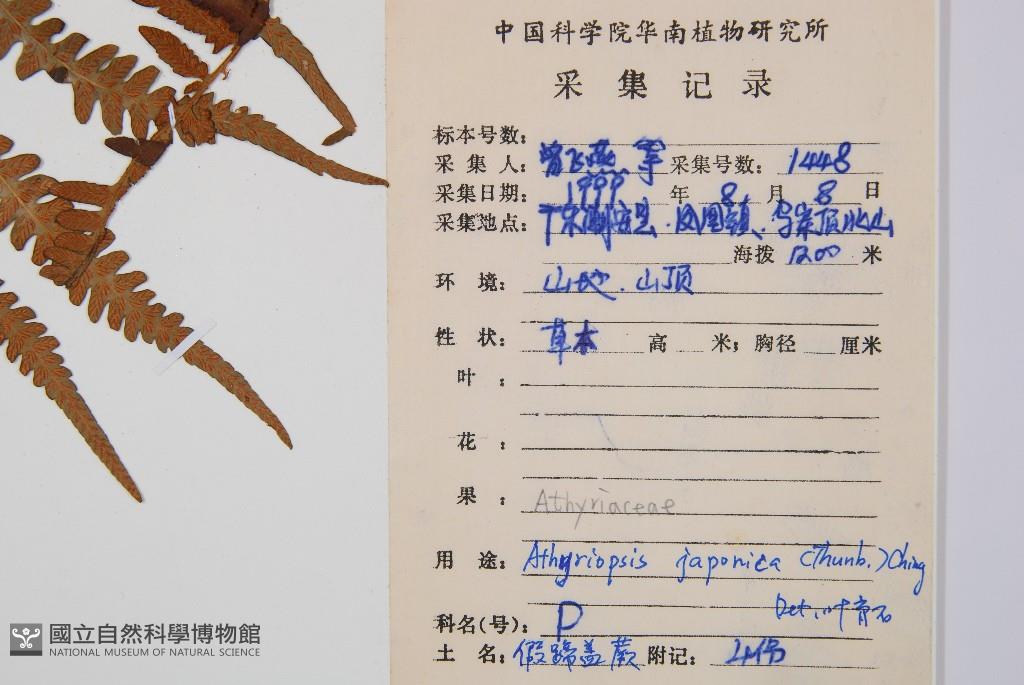 中国科学院华南植物研究所
采集记录
标本号数:
采集人: 曾飞燕 等 采集号数: 1448
采集日期: 1999 年 8 月 8 日
采集地点: 广东潮安县.凤凰镇、乌岽顶
海拨 1200 米
环境: 山地.山顶
性状: 草本 高 米; 胸径 厘米
叶:
花:
果: Athyriaceae
用途: Athyriopsis japonica (Thunb.) Ching
Det. 叶育石
科名(号): P
土名: 假蹄盖蕨 附记: 4份
國立自然科學博物館
NATIONAL MUSEUM OF NATURAL SCIENCE